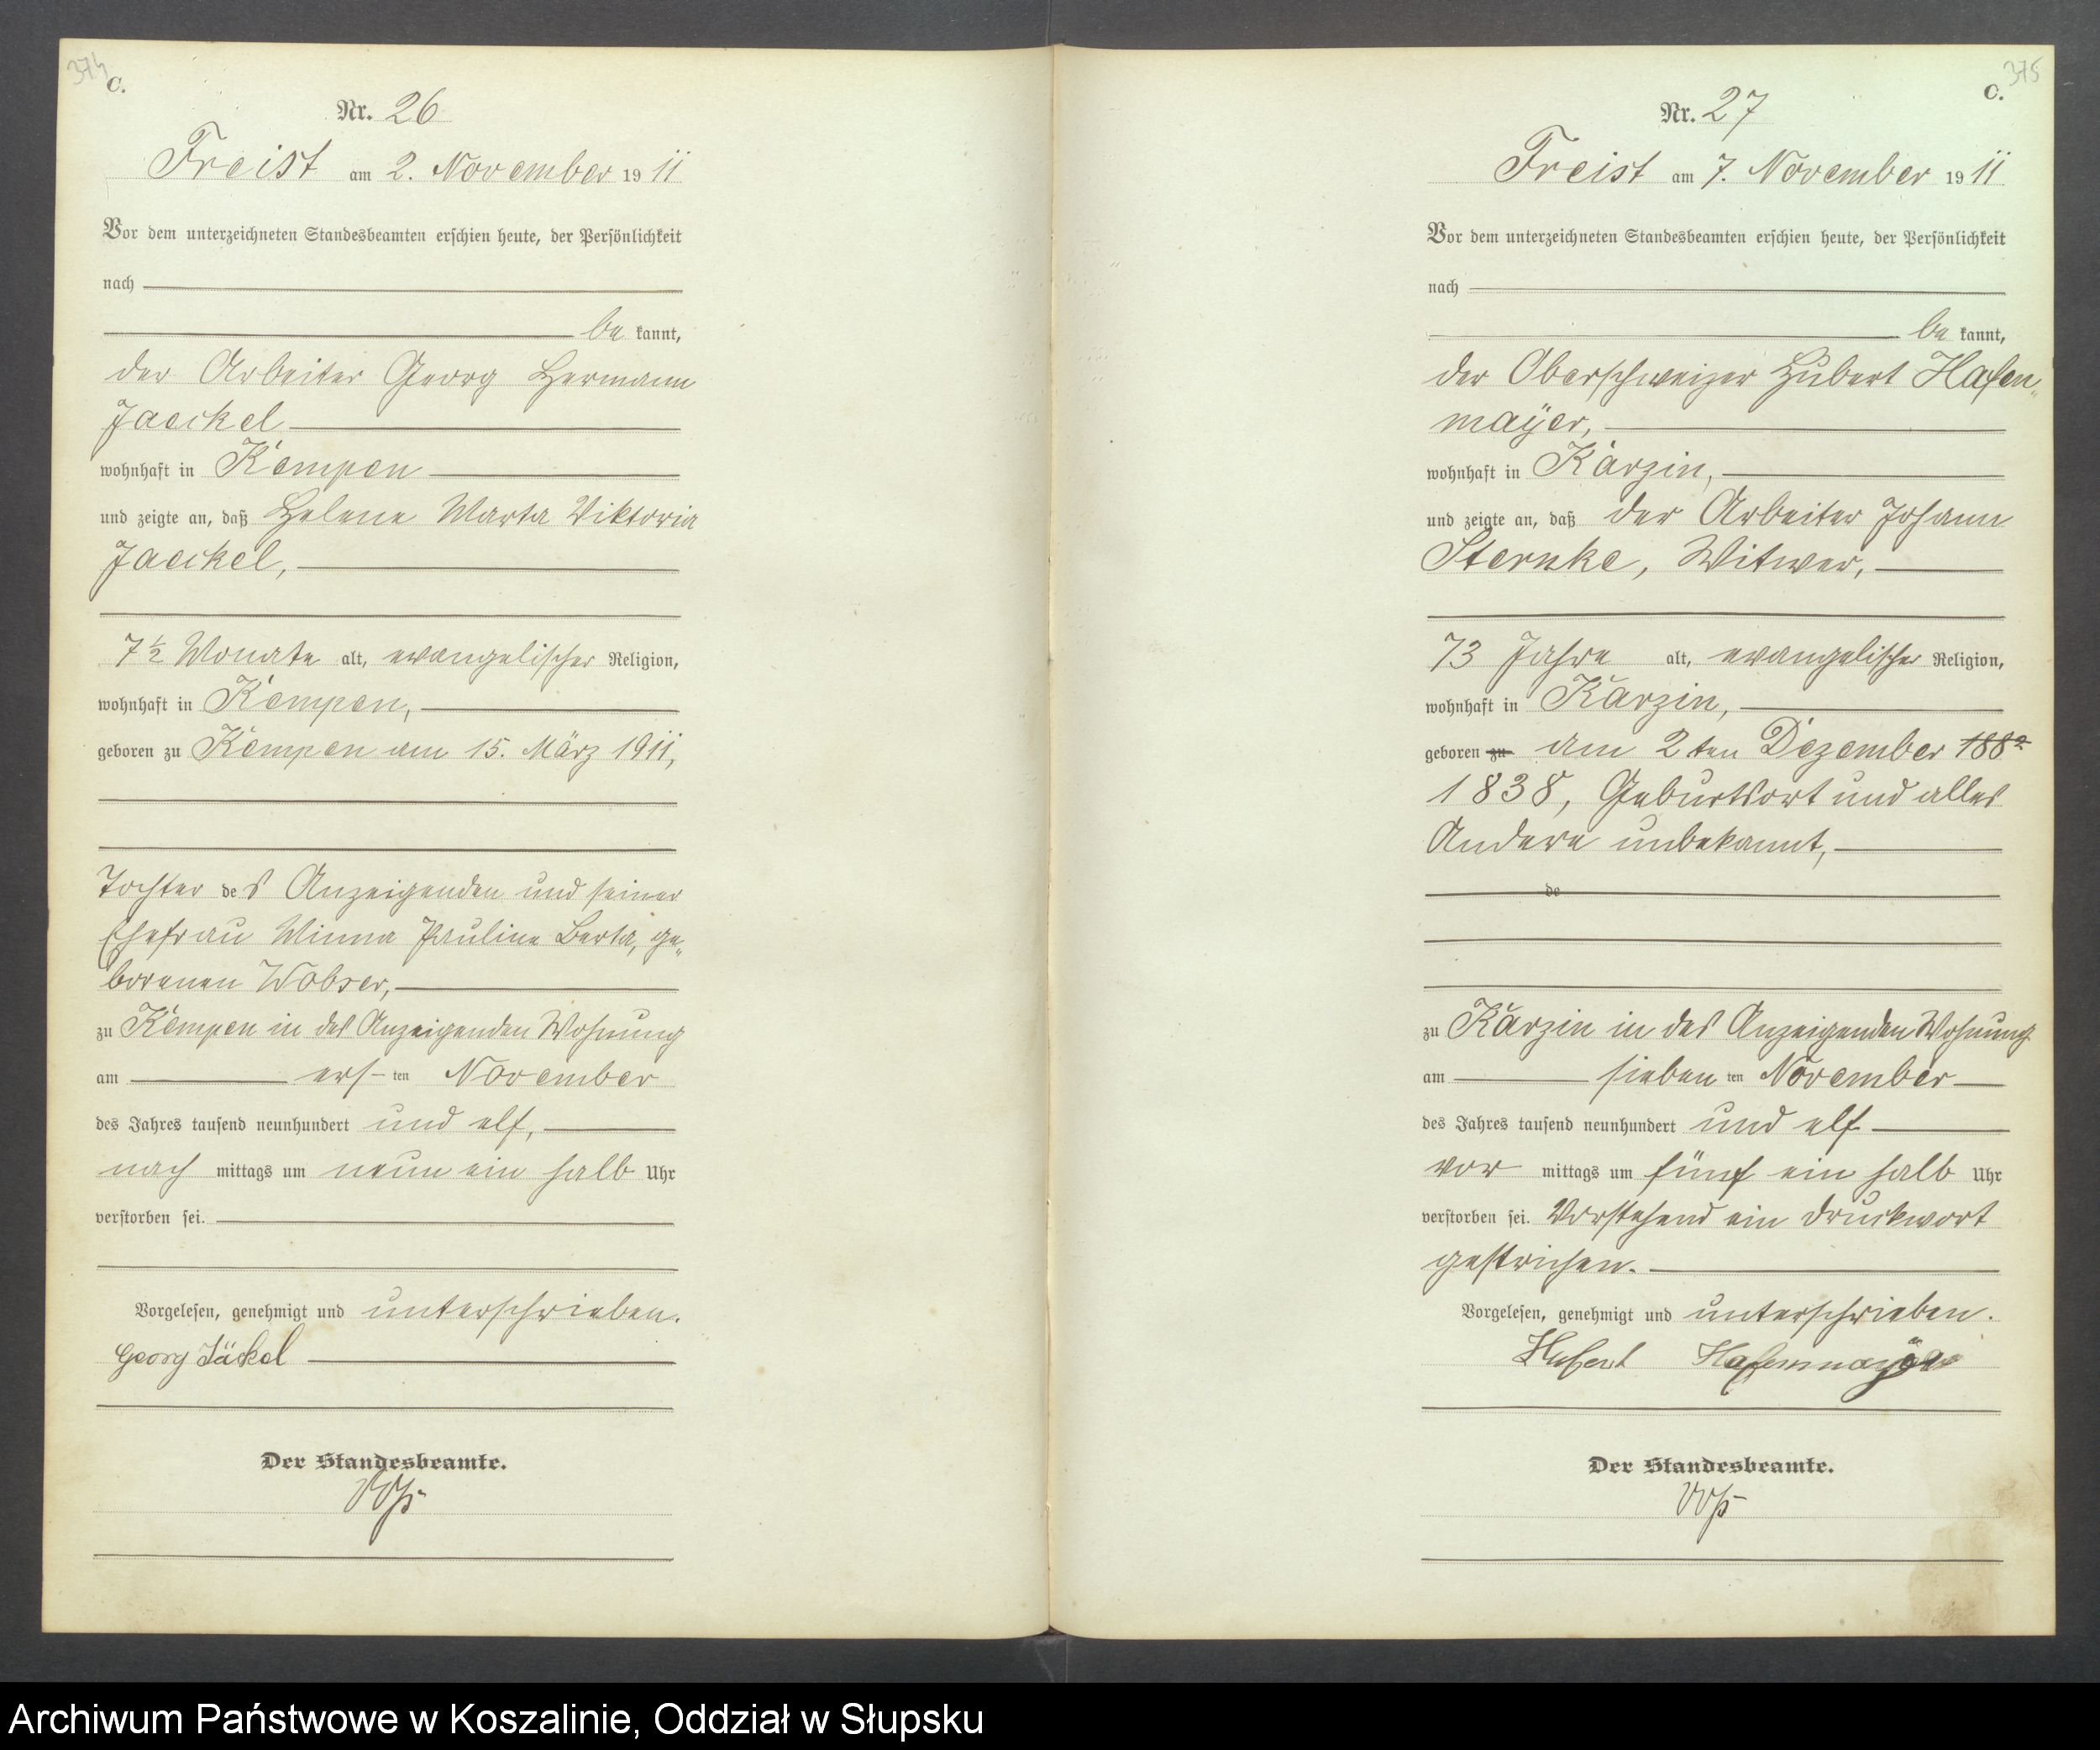 374
C.
Nr. 26
Freist am 2. November 1911
Vor dem unterzeichneten Standesbeamten erschien heute, der Persönlichkeit
nach
be kannt,
der Arbeiter Georg Hermann
Jaeckel
wohnhaft in Kempen
und zeigte an, daß Helene Marta Viktoria
Jaeckel,
7½ Monate alt, evangelischer Religion,
wohnhaft in Kempen,
geboren zu Kempen am 15. März 1911,
Tochter des Anzeigenden und seiner
Ehefrau Minna Pauline Berta, ge„
borenen Wobser,
zu Kempen in des Anzeigenden Wohnung
am ers-ten November
des Jahres tausend neunhundert und elf,
nach mittags um neun ein halb Uhr
verstorben sei.
Vorgelesen, genehmigt und unterschrieben.
Georg Jäckel
Der Standesbeamte.
Voß
375
C.
Nr. 27
Freist am 7. November 1911
Vor dem unterzeichneten Standesbeamten erschien heute, der Persönlichkeit
nach
be kannt,
der Oberschweizer Hubert Hafen„
mayer,
wohnhaft in Karzin,
und zeigte an, daß der Arbeiter Johann
Sternke, Witwer,
73 Jahre alt, evangelischer Religion,
wohnhaft in Karzin,
geboren zu am 2ten Dezember 188
1838, Geburtsort und alles
Andere unbekannt,
de
zu Karzin in des Anzeigenden Wohnung
am sieben ten November
des Jahres tausend neunhundert und elf
vor mittags um fünf ein halb Uhr
verstorben sei. Vorstehend ein Druckwort
gestrichen.
Vorgelesen, genehmigt und unterschrieben.
Hubert Hafenmayer
Der Standesbeamte.
Voß
Archiwum Państwowe w Koszalinie, Oddział w Słupsku